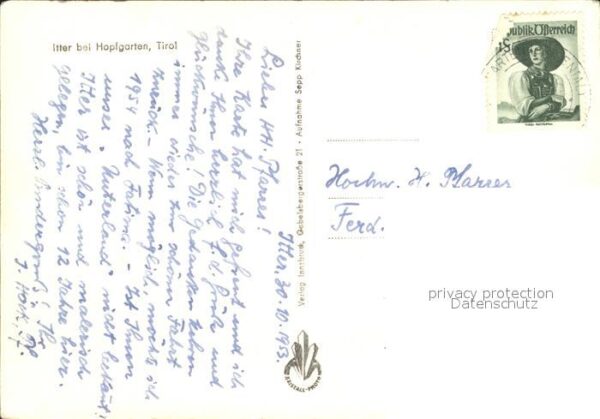 Itter bei Hopfgarten, Tirol
Itter, 30.10.1953.
Lieber HH. Pfarrer!
Ihre Karte hat mich gefreut und ich
danke Ihnen herzlich f. d. Grüße und
Glückwünsche! Die Gedanken leben
immer wieder zur schönen Fahrt
zurück. - Wenn möglich, möchte ich
1954 nach Fatima. - Ist Ihnen
unser "Unterland" nicht bekannt?
Itter ist schön und malerisch
gelegen, bin schon 12 Jahre hier.
Herzl. Ihr
Verlag Innsbruck, Gabelsbergerstraße 21 - Aufnahme Sepp Kirchner
KRISTALL-PHOTO
Republik Österreich
Hochw. H. Pfarrer
Ferd.
privacy protection
Datenschutz